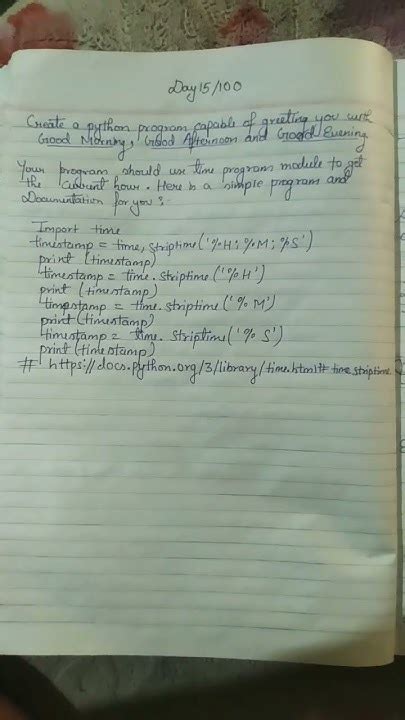 Day 15/100
Create a python program capable of greeting you with
Good Morning, Good Afternoon and Good Evening
Your program should use time program module to get
the current hour. Here is a simple program and
Documentation for you :
Import time
timestamp = time, striptime('%H:%M:%S')
print (timestamp)
timestamp = time. striptime('%H')
print (timestamp)
timestamp = time. striptime('%M')
print (timestamp)
timestamp = time. striptime('% S')
print (timestamp)
# https://docs.python.org/3/library/time.html# time striptime